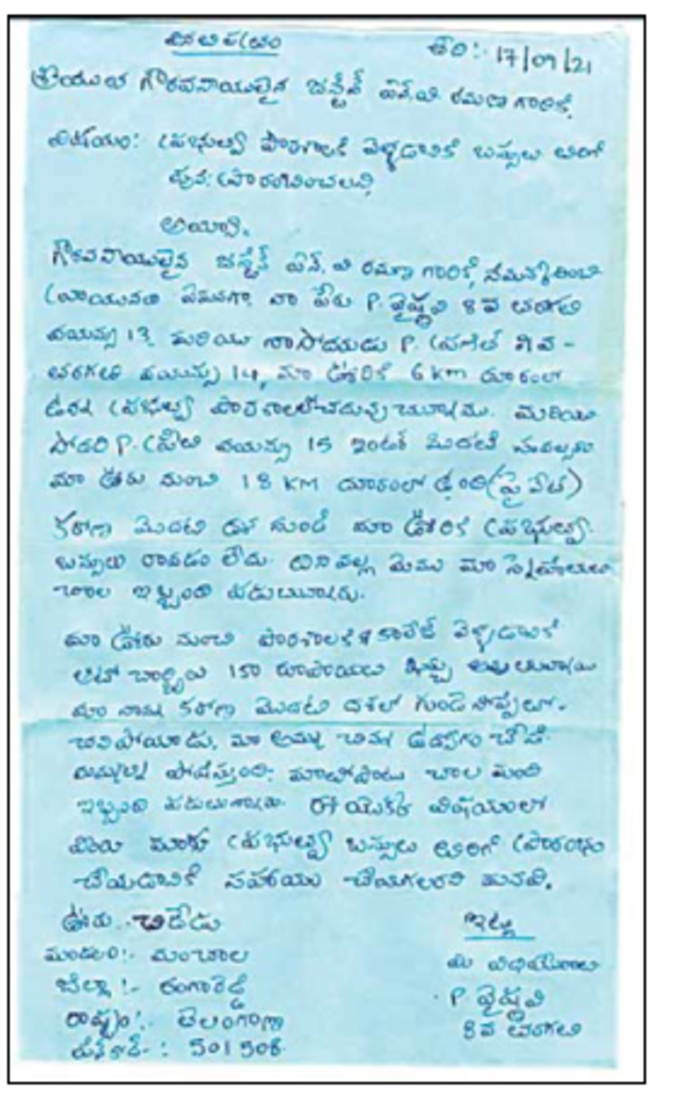 వినతి పత్రం
తేది:- 17/09/21
శ్రీయుత గౌరవనీయులైన జస్టిస్ ఎన్.వి. రమణ గారికి,
విషయం: ప్రభుత్వ పాఠశాలకి వెళ్ళడానికి బస్సులు తిరిగి
పున: ప్రారంభించుటకై
అయ్యా,
గౌరవనీయులైన జస్టిస్ ఎన్. వి రమణ గారికి, నమస్కరించి
వ్రాయునది ఏమనగా, నా పేరు P. వైష్ణవి 8 వ తరగతి
వయస్సు 13, మరియు నా సోదరుడు P. ప్రణీత్ 9 వ -
తరగతి వయస్సు 14, మా ఊరికి 6 km దూరంలో
ఉన్న ప్రభుత్వ పాఠశాలలో చదువుచున్నాము. మరియు
సోదరి P. ప్రీతి వయస్సు 15 ఇంటర్ మొదటి సంవత్సరం
మా ఊరు నుంచి 18 KM దూరంలో ఉంది (ప్రైవేట్)
కరోనా మొదటి దశ నుండి మా ఊరికి ప్రభుత్వ
బస్సులు రావడం లేదు. దీని వల్ల మేము మా స్నేహితులు
చాల ఇబ్బంది పడుతున్నారు.
మా ఊరు నుంచి పాఠశాలకి కాలేజీ వెళ్ళడానికి
ఆటో చార్జీలు 150 రూపాయలు ఖర్చు అవుతున్నాయి
మా నాన్న కరోనా మొదటి దశలో గుండె నొప్పితో.
చనిపోయాడు, మా అమ్మ చిన్న ఉద్యోగం చేసి
మమ్మల్ని పోషిస్తుంది. మాతోపాటు చాల మంది
ఇబ్బంది పడుతున్నారు. ఈ యొక్క విషయంలో
మాకు ప్రభుత్వ బస్సులు తిరిగి ప్రారంభం
చేయడానికి సహాయం చేయగలరని మనవి.
ఊరు :- చిదేడు
మండలం:- మంచాల
జిల్లా :- రంగారెడ్డి
రాష్ట్రం:- తెలంగాణ
పిన్ కోడ్- : 501508
ఇట్లు
మీ విధేయురాలు
P. వైష్ణవి
8 వ తరగతి